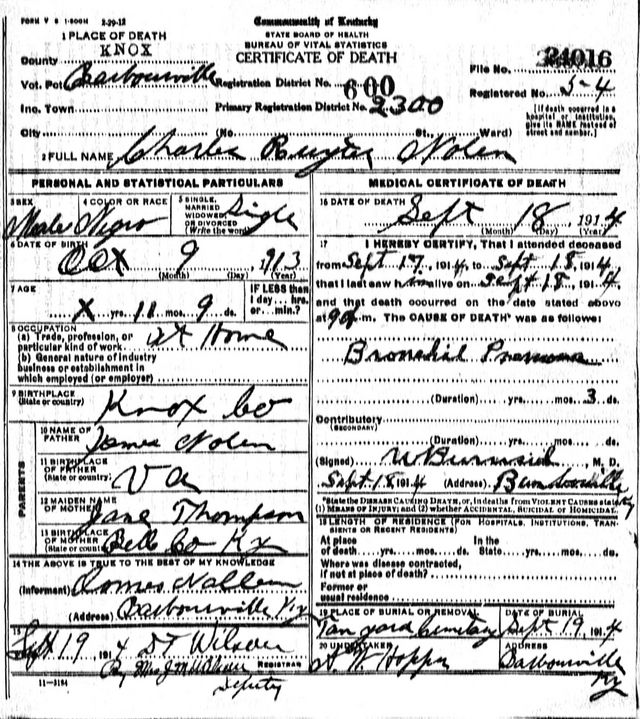 FORM V S 1-500M 2-29-12
Commonwealth of Kentucky
STATE BOARD OF HEALTH
BUREAU OF VITAL STATISTICS
CERTIFICATE OF DEATH
1 PLACE OF DEATH
County KNOX
Vot. Pct Barbourville
Inc. Town
City (No. St., Ward)
Registration District No. 600
Primary Registration District No. 2300
File No. 24016
Registered No. 54
[If death occurred in a hospital or institution, give its NAME instead of street and number.]
2 FULL NAME Charles Nolen
PERSONAL AND STATISTICAL PARTICULARS
3 SEX Male
4 COLOR OR RACE Negro
5 SINGLE, MARRIED WIDOWED, OR DIVORCED (Write the word) Single
6 DATE OF BIRTH Oct 9 1913
(Month) (Day) (Year)
7 AGE X yrs. 11 mos. 9 ds.
IF LESS than 1 day... hrs. or... min.?
8 OCCUPATION
(a) Trade, profession, or particular kind of work at Home
(b) General nature of industry business or establishment in which employed (or employer)
9 BIRTHPLACE (State or country) Knox Co
PARENTS
10 NAME OF FATHER James Nolen
11 BIRTHPLACE OF FATHER (State or country) Va
12 MAIDEN NAME OF MOTHER Jane Thompson
13 BIRTHPLACE OF MOTHER (State or country) Bell Co Ky
14 THE ABOVE IS TRUE TO THE BEST OF MY KNOWLEDGE
(Informant)
(Address) Barbourville Ky
15 Sept 19 1914
REGISTRAR
By Mrs
Deputy
11-3184
MEDICAL CERTIFICATE OF DEATH
16 DATE OF DEATH Sept 18, 1914
(Month) (Day) (Year)
17 I HEREBY CERTIFY, That I attended deceased
from Sept 17, 1914, to Sept 18, 1914
that I last saw him alive on Sept 18, 1914
and that death occurred on the date stated above
at 9 a m. The CAUSE OF DEATH* was as follows:
Bronchial
(Duration) yrs. mos. 3 ds.
Contributory
(SECONDARY)
(Duration) yrs. mos. ds.
(Signed) M. D.
Sept 18 1914 (Address) Barbourville
*State the DISEASE CAUSING DEATH, or, in deaths from VIOLENT CAUSES state (1) MEANS OF INJURY; and (2) whether ACCIDENTAL, SUICIDAL or HOMICIDAL.
18 LENGTH OF RESIDENCE (FOR HOSPITALS, INSTITUTIONS, TRANSIENTS OR RECENT RESIDENTS)
At place of death yrs. mos. ds. In the State yrs. mos. ds.
Where was disease contracted, if not at place of death?
Former or usual residence
19 PLACE OF BURIAL OR REMOVAL Tan yard Cemetary
DATE OF BURIAL Sept 19, 1914
20 UNDERTAKER A. W. Hopper
ADDRESS Barbourville Ky